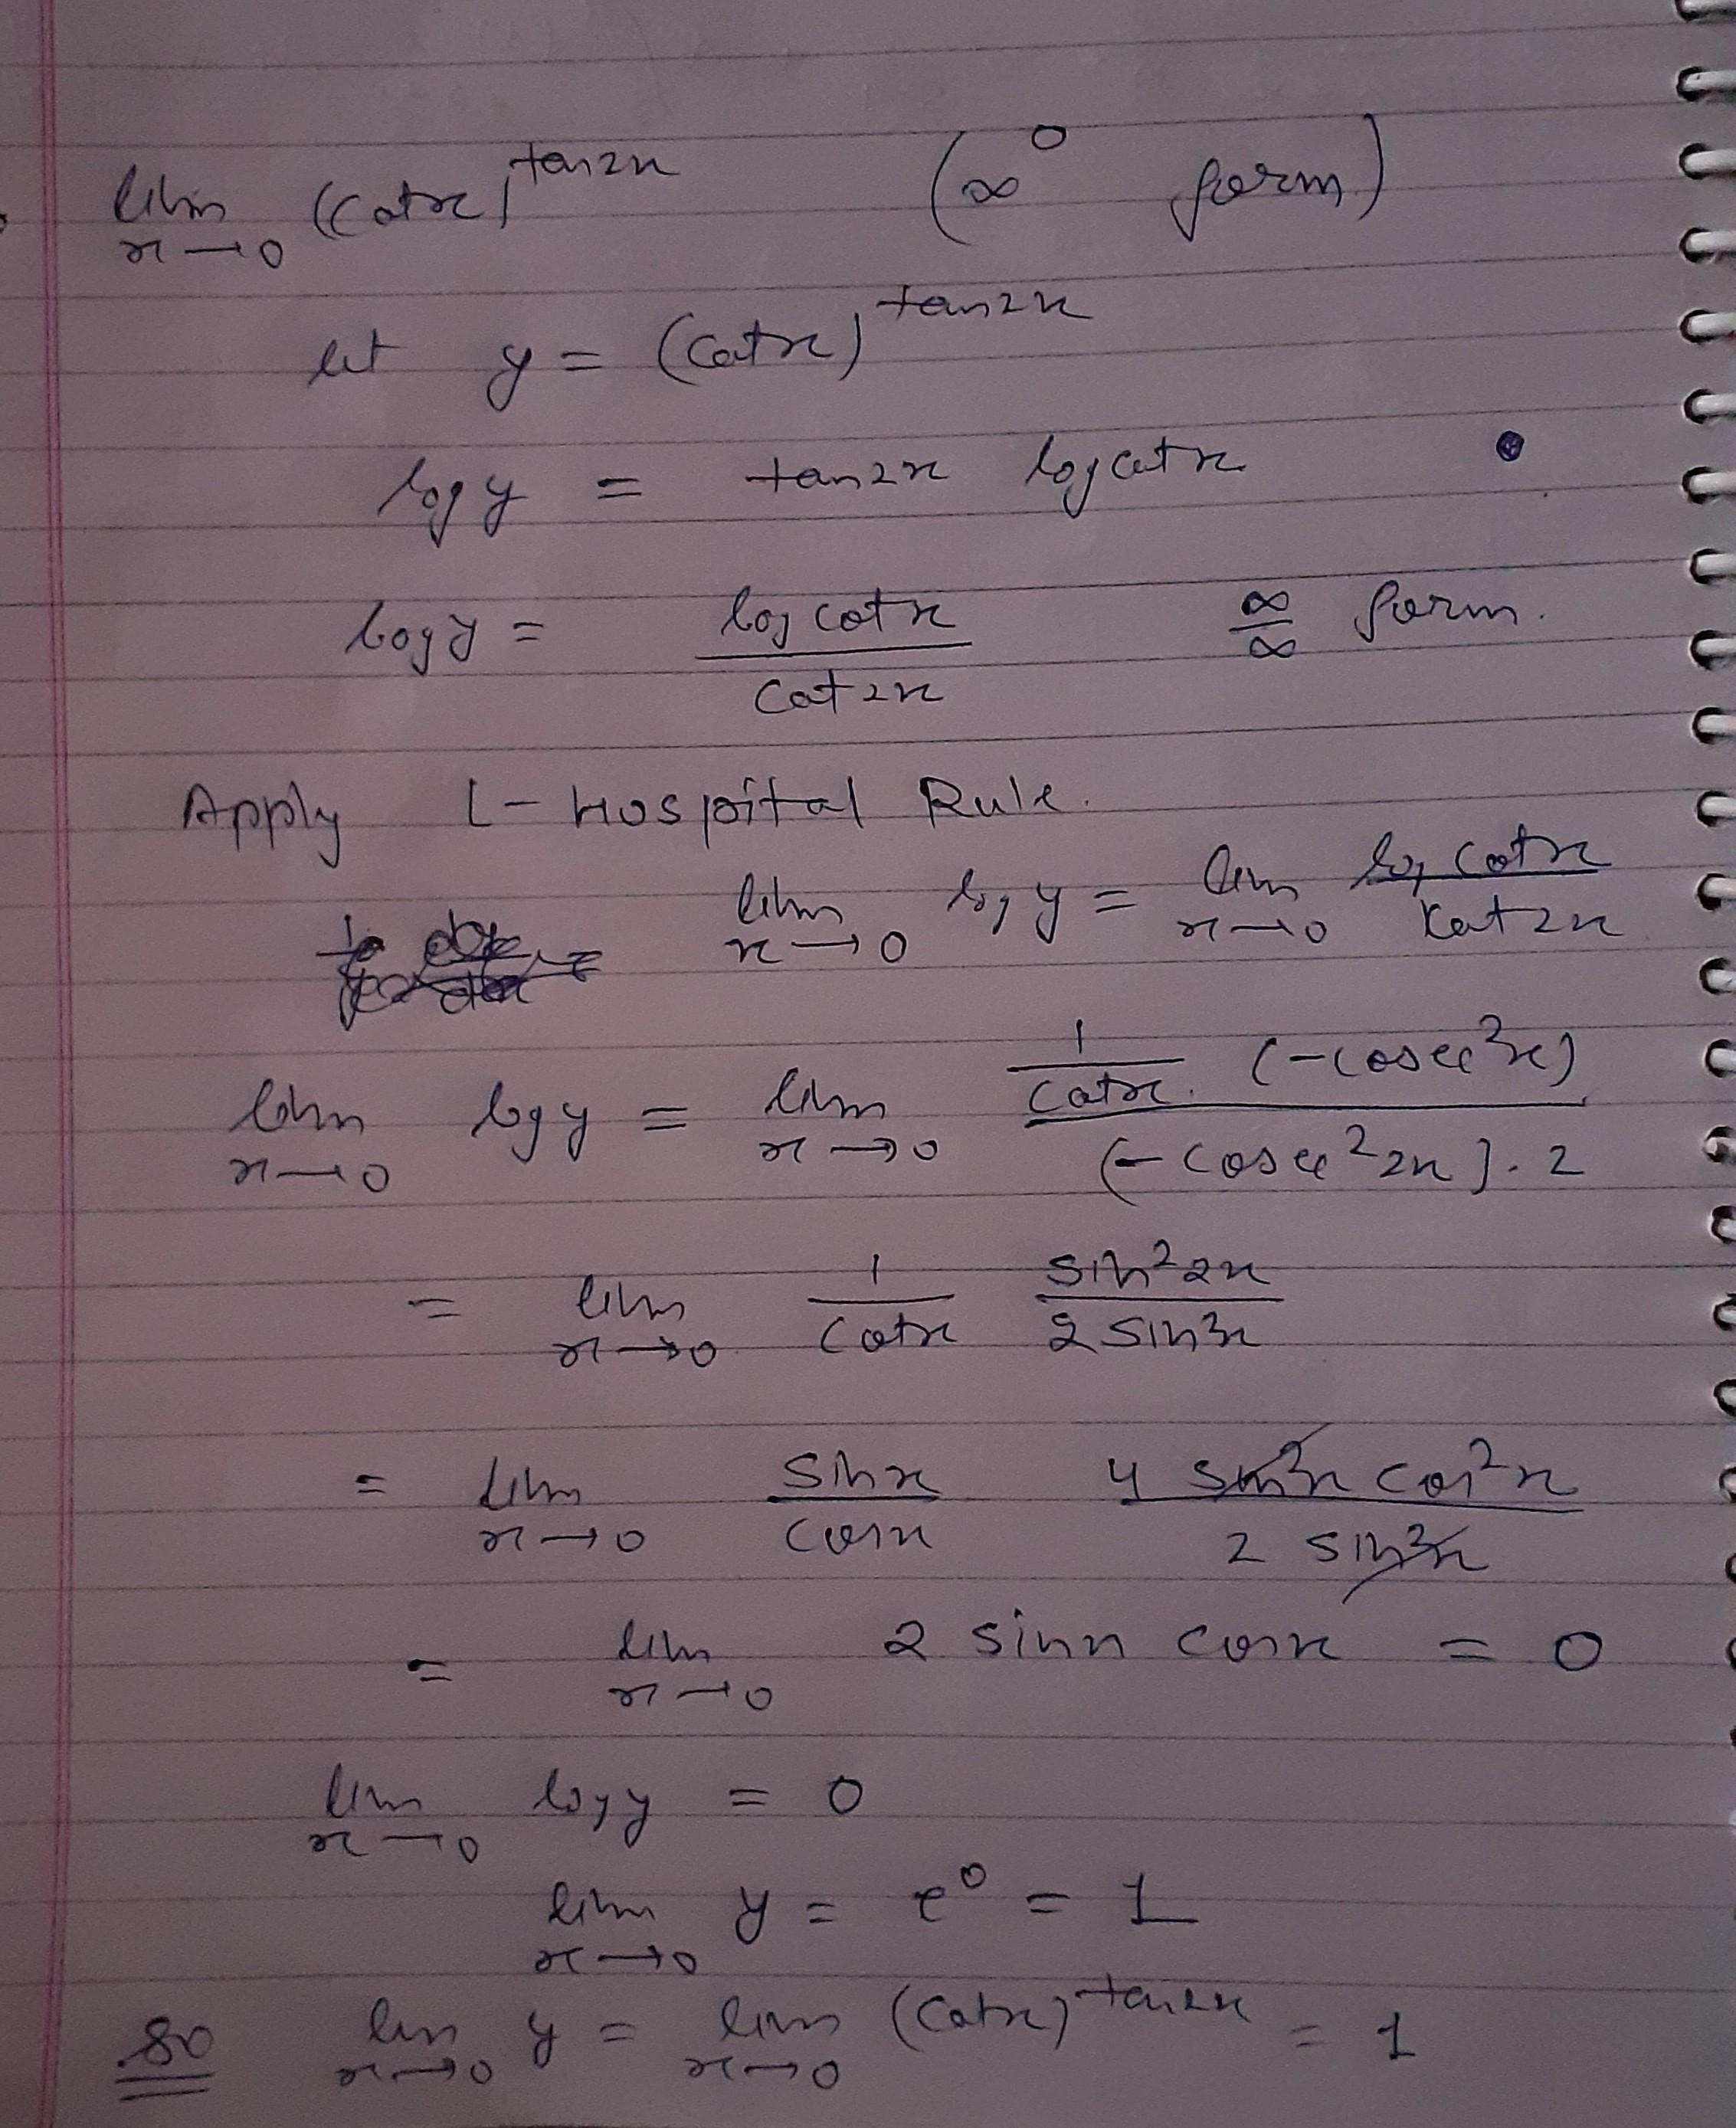 lim x→0 (cotx)^tan2x (∞^0 form)
let y = (cotx)^tan2x
log y = tan2x log cotx
log y = log cotx / cot2x ∞/∞ form.
Apply L-Hospital Rule.
lim x→0 log y = lim x→0 log cotx / cot2x
lim x→0 log y = lim x→0 1/cotx . (-cosec²x) / (-cosec²2x).2
= lim x→0 1/cotx sin²2x / 2 sin²x
= lim x→0 sinx/cosx 4 sin²x cos²x / 2 sin²x
= lim x→0 2 sinx cosx = 0
lim x→0 log y = 0
lim x→0 y = e^0 = 1
so lim x→0 y = lim x→0 (cotx)^tan2x = 1